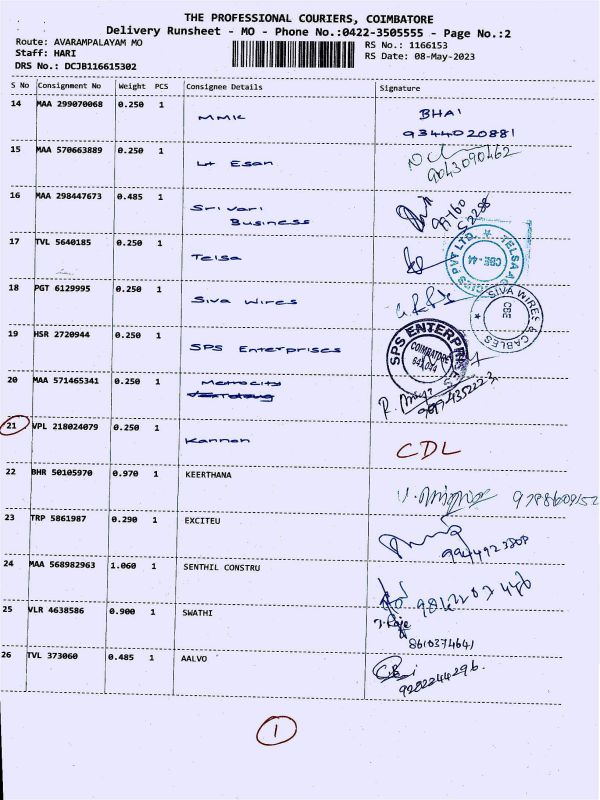 THE PROFESSIONAL COURIERS, COIMBATORE
Delivery Runsheet - MO - Phone No.:0422-3505555 - Page No.:2
Route: AVARAMPALAYAM MO
RS No.: 1166153
Staff: HARI
RS Date: 08-May-2023
DRS No.: DCJB116615302
S No Consignment No Weight PCS Consignee Details Signature
14 MAA 299070068 0.250 1 MMK BHAI
9344020881
15 MAA 570663889 0.250 1 Esan
9043090462
16 MAA 298447673 0.485 1 Srivari
Business
17 TVL 5640185 0.250 1 Telsa
CBE-44
18 PGT 6129995 0.250 1 Siva wires
SIVA WIRES & CABLES
CBE
19 HSR 2720944 0.250 1 SPS Enterprises
SPS ENTERPRISES
COIMBATORE
20 MAA 571465341 0.250 1 Metrocity
21 VPL 218024079 0.250 1 Kannan CDL
22 BHR 50105970 0.970 1 KEERTHANA
23 TRP 5861987 0.290 1 EXCITEU
24 MAA 568982963 1.060 1 SENTHIL CONSTRU
25 VLR 4638586 0.900 1 SWATHI
8610374641
26 TVL 373060 0.485 1 AALVO
9202244296.
1